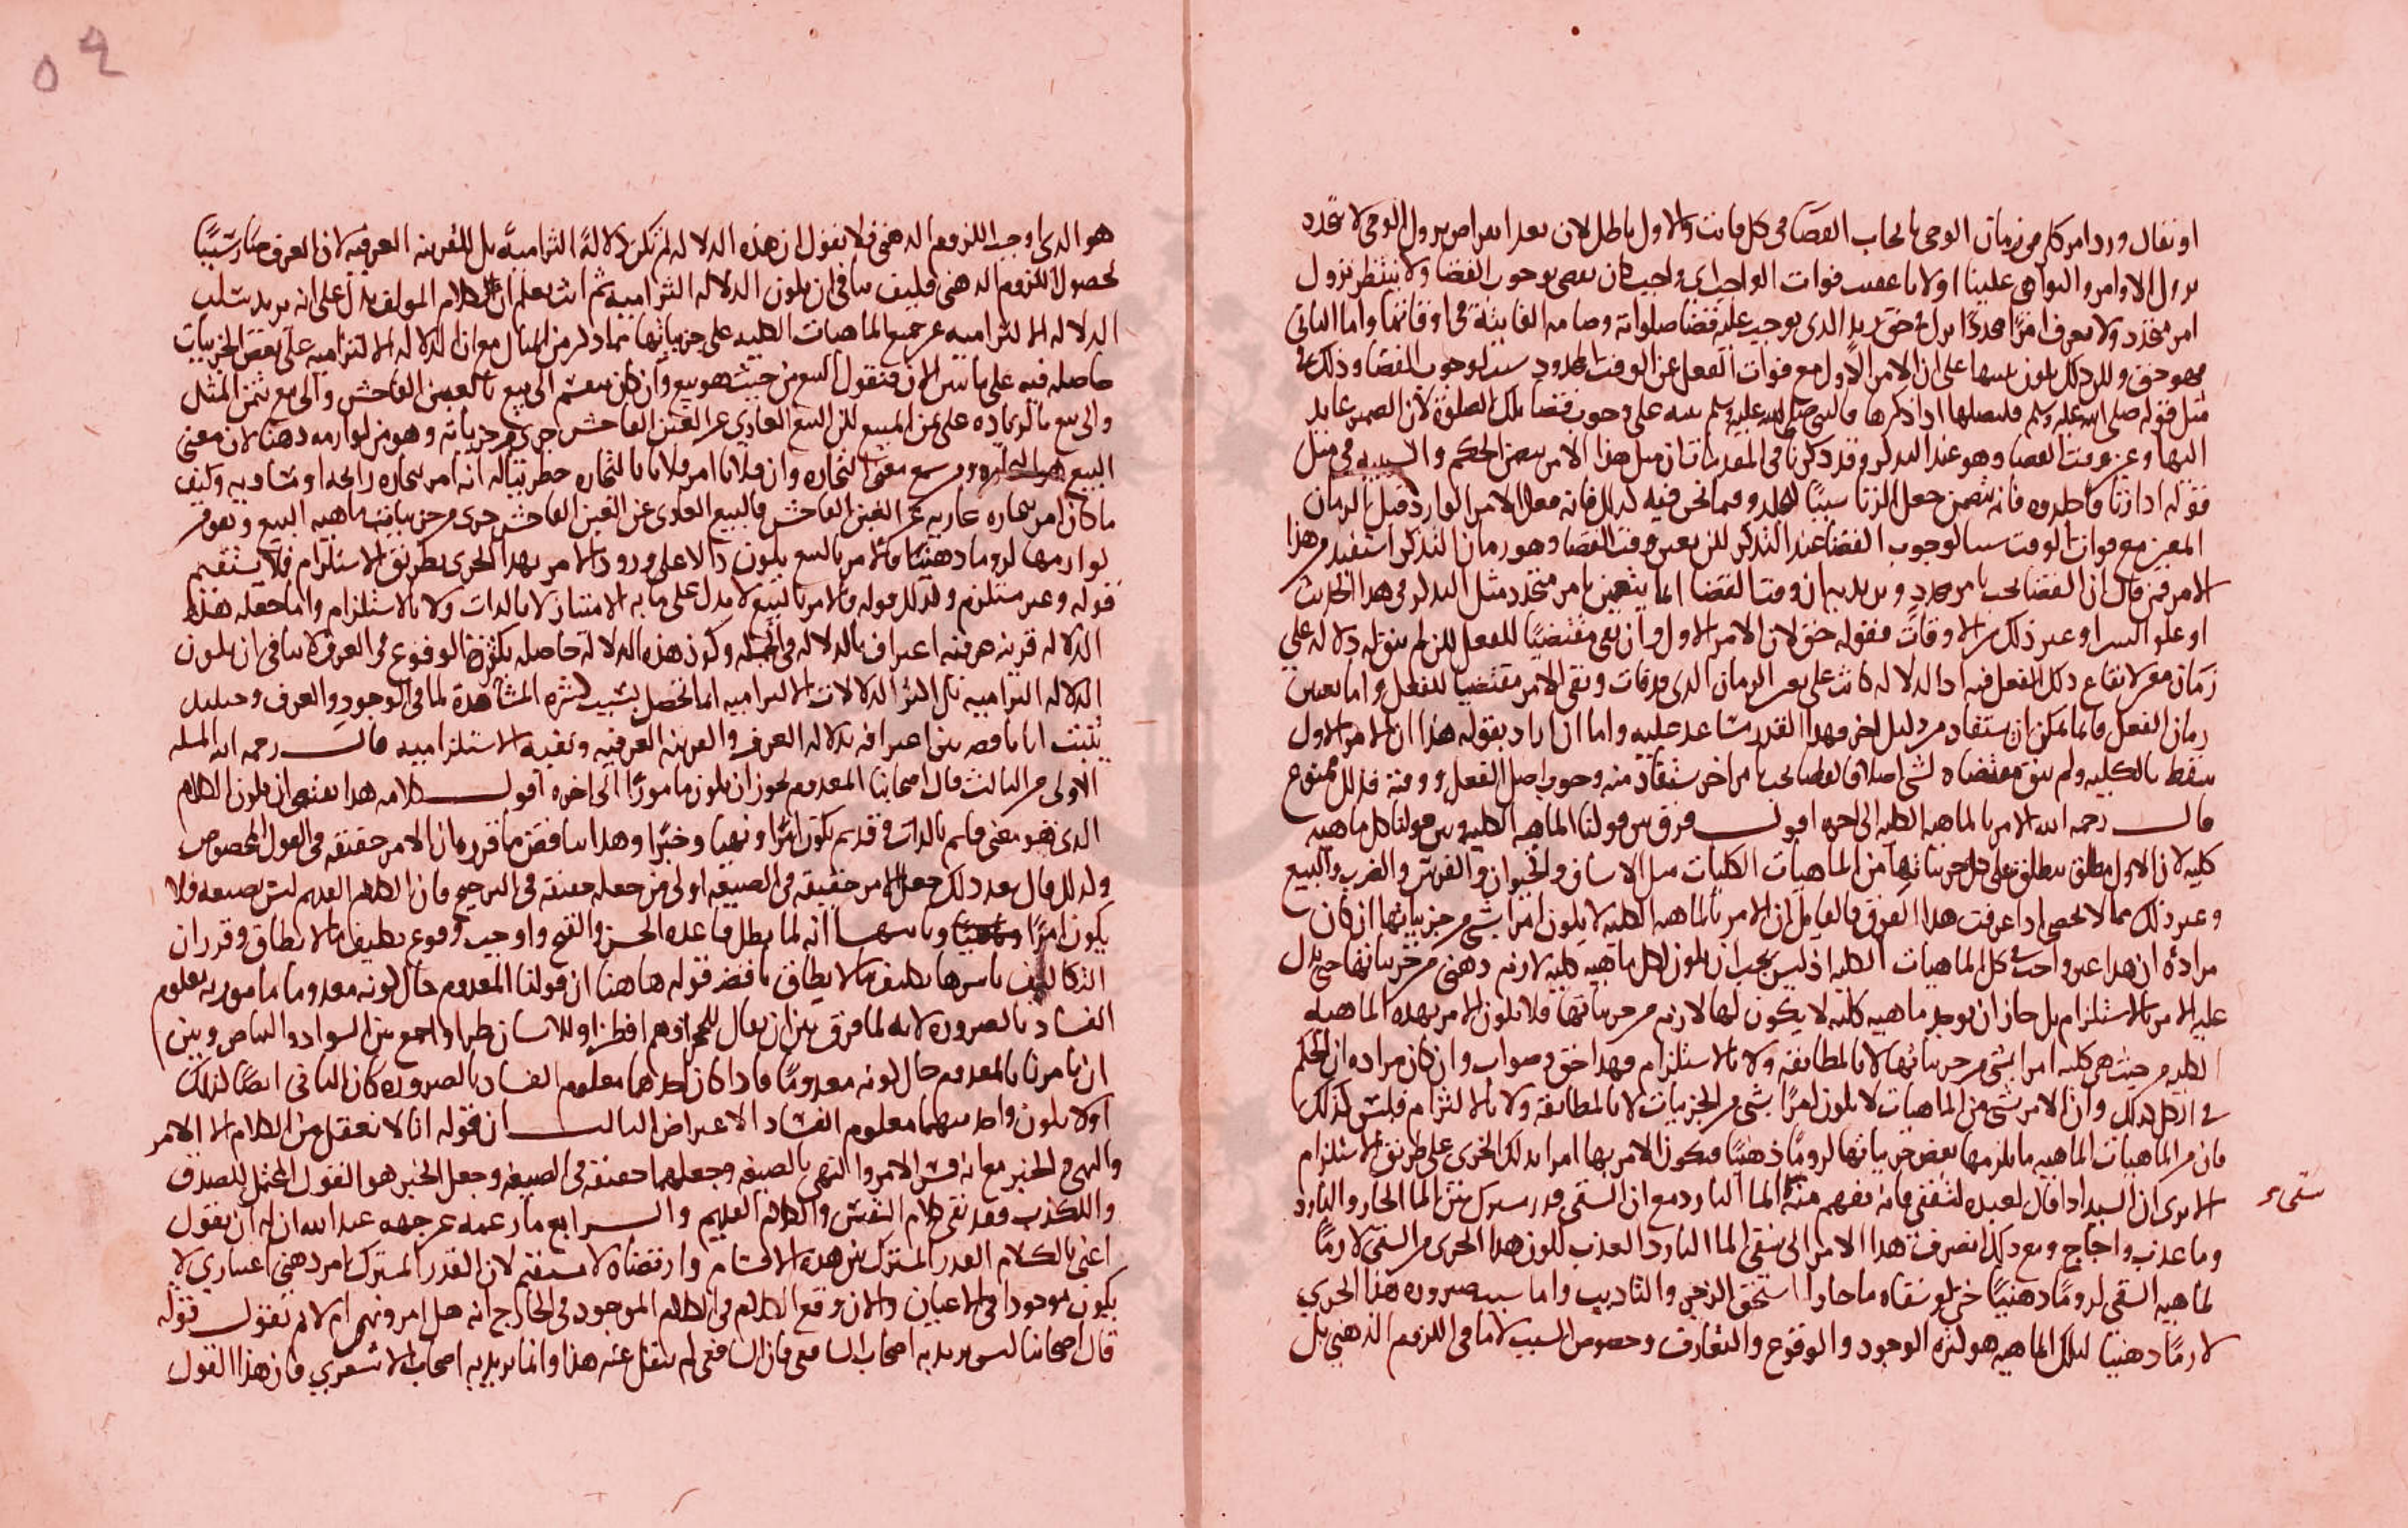 او نقال ورد امر كل من زمان الوحى بايجاب القضا فى كل فائت والاول باطل لان بعد انقراض نزول الوحى لا تتجدد
نزول الاوامر والنواهى علينا اولا ما عقيب فوات الواجب اى واجب كان نقضى بوجوب القضا ولا ننتظر نزول
امر مجدد ولا نعرف امرًا مجددًا نزل فى حق زيد الذى يوجب عليه قضا صلواته وصيامه الفايتة فى اوقاتها واما الثانى
فهو حق وللرد لكن يكون تنبيها على ان الامر الاول مع فوات الفعل عن الوقت المحدود سبب لوجوب القضا وذلك فى
مثل قوله صلى الله عليه وسلم فليصلها اذا ذكرها فالنبى صلى الله عليه وسلم نبه على وجوب قضا تلك الصلوة لان الضمير عايد
اليها وعين وقت القضا وهو عند التذكر وقد ذكرنا فى المقدمات ان مثل هذا الامر يتضمن الحكم والسببيه فى مثل
قوله اذا زنا فاجلدوه فانه يتضمن جعل الزنا سببًا للجلد وفيما نحن فيه كذلك فانه جعل الامر الوارد قبل الزمان
المعين مع فوات الوقت سببا لوجوب القضا عند التذكر لكن تعين وقت القضا وهو زمان التذكر استفيد من هذا
الامر فمن قال ان القضا يجب بامر مجدد ويريد به ان وقت القضا انما يتعين بامر متجدد مثل التذكر فى هذا الحديث
او علو السرا وغير ذلك من الاوقات فقوله حق لان الامر الاول وان بقى مقتضيًا للفعل لكن لم يبق له دلاله على
زمان معين لايقاع ذلك الفعل فيه اذ الدلاله كانت على نفس الزمان الذى قد فات وبقى الامر مقتضيا للفعل واما تعين
زمان الفعل فانما يمكن ان يستفاد من دليل اخر فهذا القدر تساعد عليه واما ان اراد بقوله هذا ان الامر الاول
سقط بالكليه ولم يبق مقتضاه لشى اصلا فالقضا يجب بامر اخر يستفاد منه وجوب اصل الفعل ووقته فذلك ممنوع
قال رحمه الله الامر بالماهيه الكليه الى اخره اقول فرق بين قولنا الماهيه الكليه وبين قولنا كل ماهيه
كليه لان الاول مطلق ينطلق على كل جزياتها من الماهيات الكليات مثل الانسان والحيوان والفرس والضرب والبيع
وغير ذلك مما لا يحصى اذا عرفت هذا الفرق فالقايل ان الامر بالماهيه الكليه لا يكون امرا بشى من جزياتها ان كان
مراده ان هذا غير واجب فى كل الماهيات الكليه اذ ليس يجب ان يكون لكل ماهيه كليه لازم ذهنى من جزياتها حتى يدل
عليه الامر بالاستلزام بل جاز ان يوجد ماهيه كليه لا يكون لها لازم من جزياتها فلا يكون الامر بهذه الماهيه
الكليه من حيث هى كليه امرا بشى من جزياتها لا بالمطابقه ولا بالاستلزام فهذا حق وصواب وان كان مراده ان الحكم
فى الكل كذلك وان الامر بشى من الماهيات لا يكون امرًا بشى من الجزييات لا بالمطابقه ولا بالالتزام فليس كذلك
فان من الماهيات الماهيه ما يلزمها بعض جزياتها لزومًا ذهنيًا فيكون الامر بها امرا بذلك الجزى على طريق الاستلزام
الا يرى ان السيد اذا قال لعبده اسقنى فانه يفهم منه الما البارد مع ان السقى قدر مشترك بين الما الحار والبارد
سقى
وما عذب واجاج ومع ذلك انصرف هذا الامر الى سقى الما البارد العذب لكون هذا الجزى من السقى لازمًا
لماهيه السقى لزومًا ذهنيًا حتى لو سقاه ما حارا استحق الزجر والتاديب واما سبب صيروره هذا الجزى
لازمًا ذهنيا لتلك الماهيه هو لثره الوجود والوقوع والتعارف وخصوص السبب لا ينافى اللزوم الذهنى بل
٥٩
هو الذى اوجب اللزوم الذهنى فلا نقول ان هذه الدلاله لم تكن دلالةً التزاميةً بل للقرينه العرفيه لان العرف صار سببًا
لحصول اللزوم الذهنى فكيف ينافى ان يكون الدلاله التزاميه ثم انت تعلم ان الكلام المولف يدل على انه يريد سلب
الدلاله الالتزاميه عن جميع الماهيات الكليه على جزياتها بما ذكر من المثال مع ان الدلاله الالتزاميه على بعض الجزييات
حاصله فيه على ما نبين الان فنقول البيع من حيث هو بيع وان كان ينقسم الى بيع بالغبن الفاحش والى بيع بثمن المثل
والى بيع بالزياده على ثمن المبيع لكن البيع العارى عن الغبن الفاحش جزى من جزياته وهو من لوازمه ذهنا لان معنى
البيع معنى التجاره وان فلانا امر فلانا بالتجاره خطر بباله انه امر بتجاره رابحه او متساويه وكيف
ما كان امر بتجاره عاريه عن الغبن الفاحش فالبيع العارى عن الغبن الفاحش جزى من جزيات ماهيه البيع وهو من
لوازمها لزوما ذهنيًا فالامر بالبيع يكون دالا على ورود الامر بهذا الجزى بطريق الاستلزام فلا يستقيم
قوله وغير مستلزم وكذلك قوله والامر بالبيع لا يدل على ما به الامتياز لا بالذات ولا بالاستلزام واما جعله هذه
الدلاله قرينه عرفيه اعتراف بالدلاله فى الجمله وكون هذه الدلاله حاصله بكثرة الوقوع فى العرف لا ينافى ان يكون
الدلاله التزاميه بل اكثر الدلالات الالتزاميه انما تحصل بسبب كثره المشاهدة لما فى الوجود والعرف وحينئذ
يثبت انا ناقصه بين اعترافه بدلاله العرف والقرينه العرفيه ونفيه الاستلزاميه قال رحمه الله المسله
الاولى من الثالث قال اصحابنا المعدوم يجوز ان يكون مامورًا الى اخره اقول كلامه هذا يقتضى ان يكون الكلام
الذى هو معنى قايم بالذات فى قديم يكون امرًا ونهيا وخبرًا وهذا يناقض ما قرره ان الامر حقيقه فى القول المخصوص
ولذلك قال بعد ذلك جعل الامر حقيقه فى الصيغه اولى من جعله حقيقه فى الترجيح فان الكلام القديم ليس بصيغه فلا
يكون امرًا ونهيًا وثانيها انه لما بطل قاعده الحسن والقبح واوجب وقوع تكليف ما لا يطاق وقرر ان
التكاليف باسرها تكليف بما لا يطاق ناقض قوله هاهنا ان قولنا المعدوم حال كونه معدوما مامور به معلوم
الفساد بالضروره لانه لما فرق بين ان يقال للحجر وللانسان طر او اجمع بين السواد والبياض وبين
ان يامرنا بالمعدوم حال كونه معدومًا فاذا كان احدهما معلوم الفساد بالضروره كان الثانى ايضًا كذلك
اولا يكون واحد منهما معلوم الفساد الاعتراض الثالث ان قوله انا لا نعقل من الكلام الا الامر
والنهى والخبر مع انه فسر الامر والنهى بالصيغه وجعلهما حقيقه فى الصيغه وجعل الخبر هو القول المحتمل للصدق
والكذب فقد نفى كلام النفس والكلام القديم والرابع ما زعمه من جهه عبد الله ان له ان يقول
اعنى بالكلام القدر المشترك بين هذه الاقسام وارتضاه لا يستقيم لان القدر المشترك امر ذهنى اعتبارى لا
يكون موجودا فى الاعيان والان وقع الكلام فى الكلام الموجود فى الخارج انه هل امر ونهى ام لا ثم نقول قوله
قال اصحابنا ليس يريد به اصحاب الشافعى فان الشافعى لم ينقل عنه هذا وانما يريد به اصحاب الاشعرى فان هذا القول